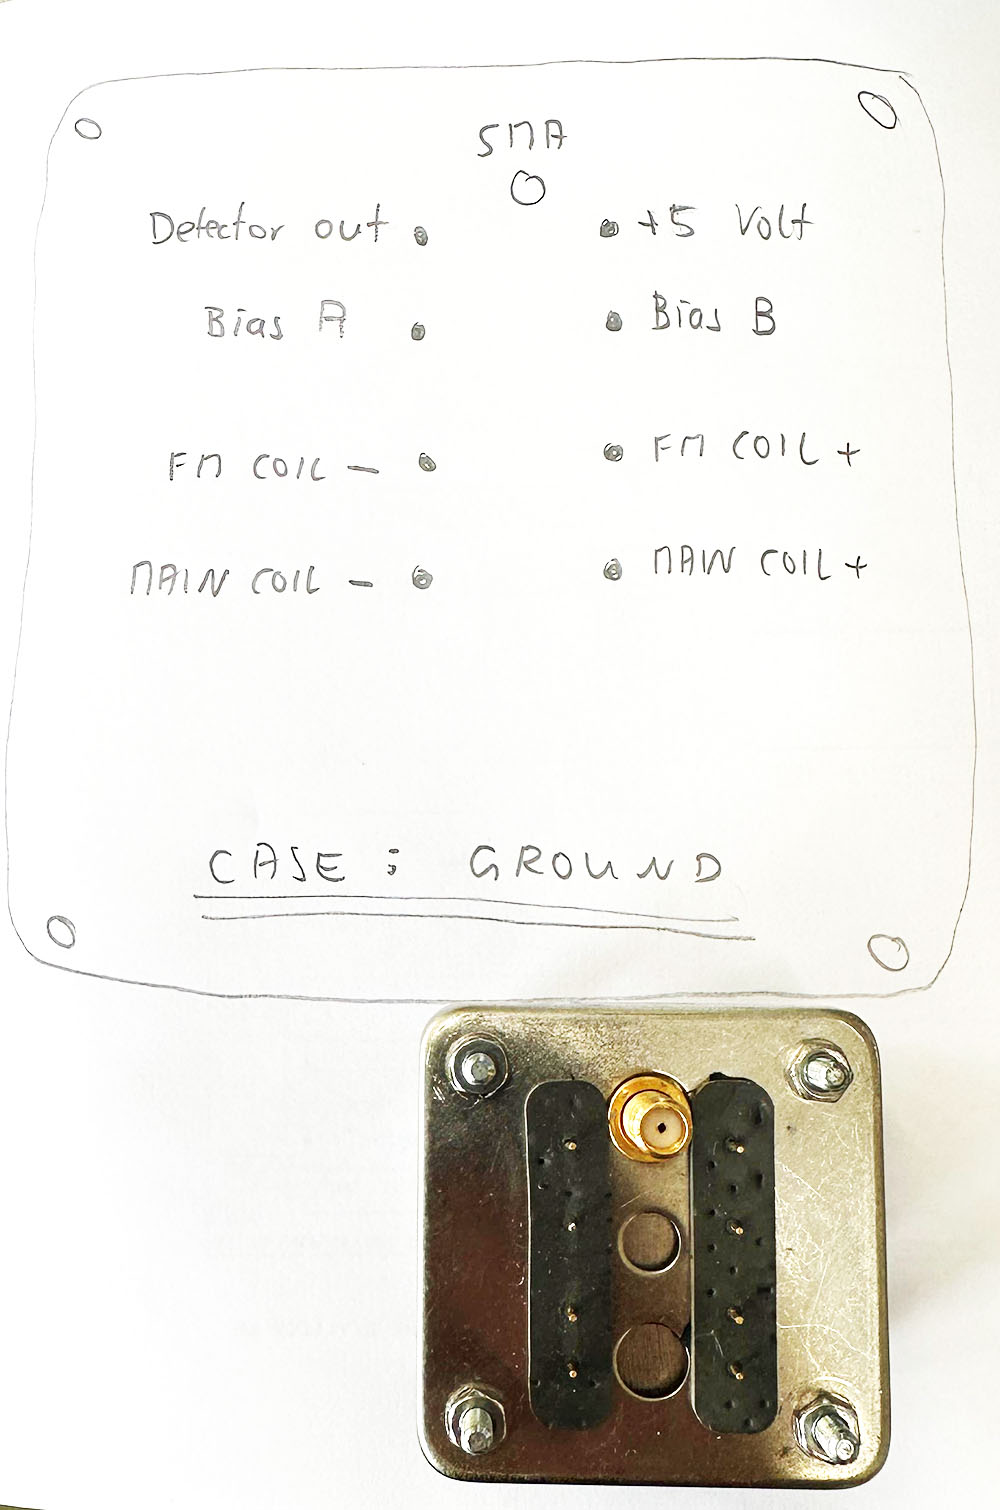 SMA
Detector out +5 Volt
Bias A Bias B
FM COIL - FM COIL +
MAIN COIL - MAIN COIL +
CASE : GROUND